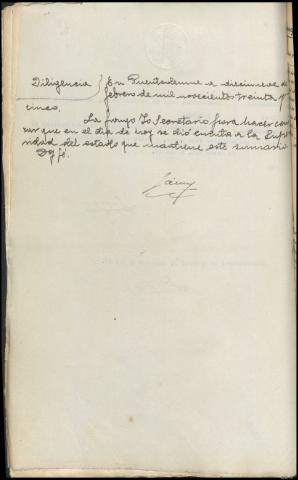 Diligencia } En Puentedeume a diecinueve de
febrero de mil novecientos treinta y
cinco.
La pongo Yo Secretario para hacer cons
tar que en el dia de hoy se dió cuenta a la Supe
ridad del estado que mantiene este sumario
Doy fé.